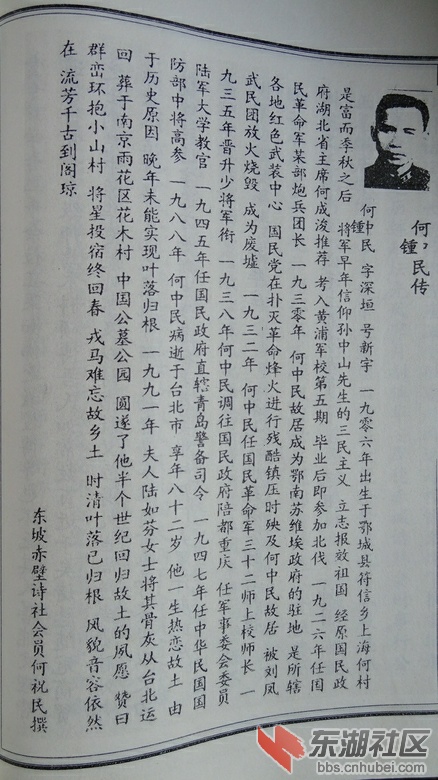 何锺民传
何锺民 字深垣 号新宇 一九〇六年出生于鄂城县符信乡上海何村
是富而季秋之后 将军早年信仰孙中山先生的三民主义 立志报效祖国 经原国民政
府湖北省主席何成浚推荐 考入黄浦军校第五期 毕业后即参加北伐 一九二六年任国
民革命军某部炮兵团长 一九三〇年 何中民故居成为鄂南苏维埃政府的驻地 是所辖
各地红色武装中心 国民党在扑灭革命烽火进行残酷镇压时殃及何中民故居 被刘凤
武民团放火烧毁 成为废墟 一九三二年 何中民任国民革命军三十二师上校师长 一
九三五年晋升少将军衔 一九三八年何中民调往国民政府陪都重庆 任军事委会委员
陆军大学教官 一九四五年任国民政府直辖青岛警备司令 一九四七年任中华民国国
防部中将高参 一九八八年 何中民病逝于台北市 享年八十二岁 他一生热恋故土 由
于历史原因 晚年未能实现叶落归根 一九九一年 夫人陆如芬女士将其骨灰从台北运
回 葬于南京雨花区花木村 中国公墓公园 圆遂了他半个世纪回归故土的夙愿 赞曰
群峦环抱小山村 将星投宿终回春 戎马难忘故乡土 时清叶落已归根 风貌音容依然
在 流芳千古到阁琼
东坡赤壁诗社会员何祝民撰
东湖社区
bbs.cnhubei.com